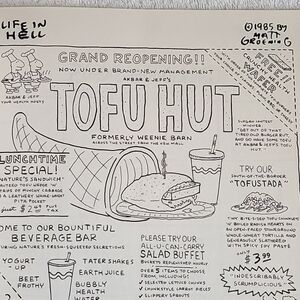 LIFE IN
HELL
©1985 BY
MATT
GROENING
GRAND REOPENING!!
NOW UNDER BRAND-NEW MANAGEMENT
AKBAR & JEFF'S
TOFU HUT
FORMERLY WEENIE BARN
ACROSS THE STREET FROM THE NEW MALL
AKBAR & JEFF
YOUR HEALTH HOSTS
FREE!!
WAFER
"GET OUT OF THAT
TIRED OLD BURGER RUT
AND GO HAVE SOME TOFU
AT AKBAR & JEFF'S TOFU
HUT"
LUNCHTIME
SPECIAL!
"NATURE'S SANDWICH"
TOFU WEDGE 'N'
OF MUNGY CABBAGE
A LEATHERY WHEAT
PITA POCKET
JUST $2.69 PLUS
TAX
TRY OUR
SOUTH-OF-THE-BORDER
"TOFUSTADA"
TINY BITE-SIZED TOFU CHUNKIES
'N' BOILED RADISH HEARTS
ON AN OPEN-FACED STONEGROUND
WHOLE-WHEAT TORTILLA AND
GENEROUSLY SLATHERED
WITH SPICY SOY PASTE
$3.99
INDESCRIBABLY
SCRUMPDILICIOUS
COME TO OUR BOUNTIFUL
BEVERAGE BAR
FEATURING NATURE'S FRESH-SQUEEZED SECRETIONS
YOGURT
UP
BEET
FROTHY
TATER SHAKES
EARTH JUICE
BUBBLY
HEALTH
WATER
PLEASE TRY OUR
ALL-U-CAN-CARRY
SALAD BUFFET
BUCKETS REPLENISHED HOURLY
OVER 5 ITEMS TO CHOOSE
FROM, INCLUDING:
SELECTED LETTUCE CHUNKS
CHUNKSTYLE LARGE PIECES
SLIPPERY SPROUTS